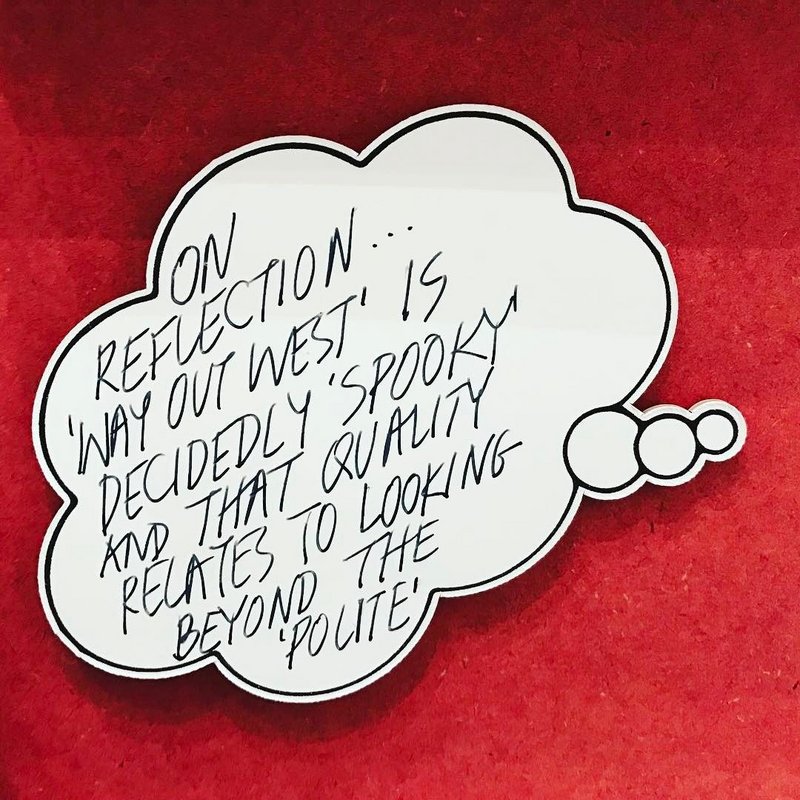 ON
REFLECTION...
'WAY OUT WEST' IS
DECIDEDLY 'SPOOKY'
AND THAT QUALITY
RELATES TO LOOKING
BEYOND THE
'POLITE'